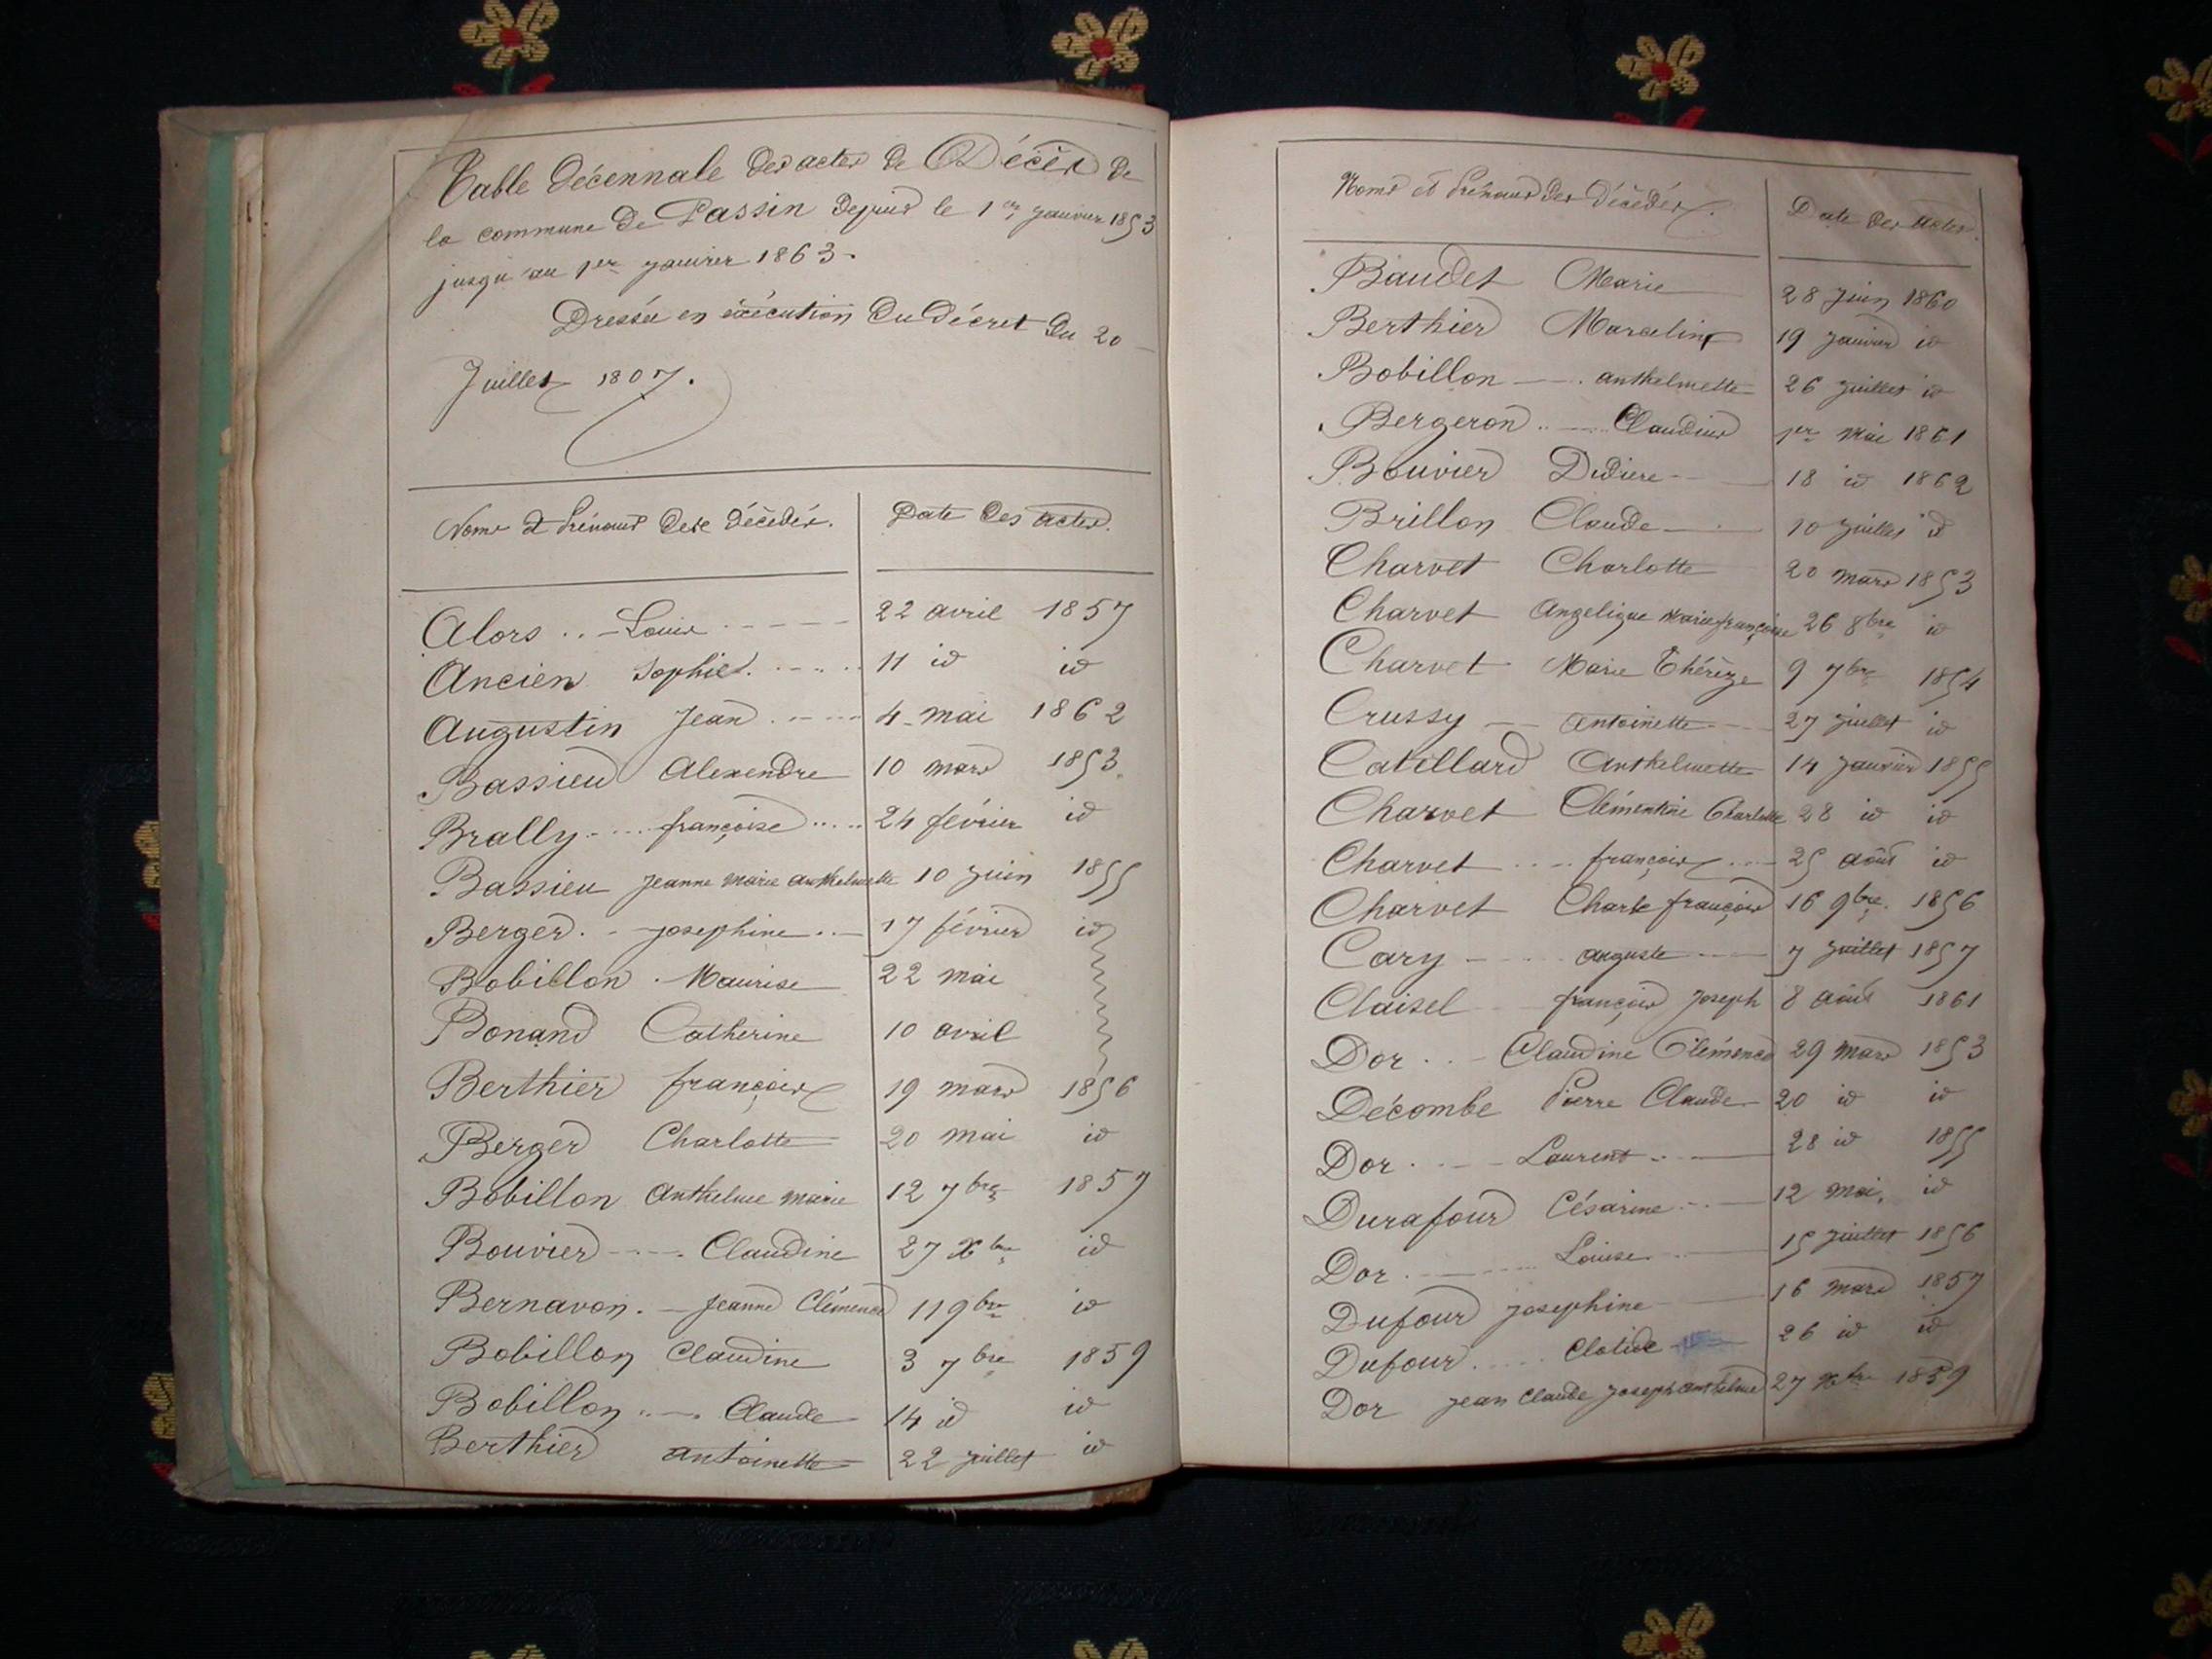 Table décennale des actes de Décès de
la commune de Passin depuis le 1er janvier 1853
jusqu'au 1er janvier 1863.
Dressée en éxécution du décret du 20
Juillet 1807.
Noms et Prénoms des décédés. Date des actes.
Alors Louis 22 avril 1857
Ancien Sophie 11 id id
Augustin Jean 4 mai 1862
Bassieu Alexendre 10 mars 1853
Brally françoise 24 février id
Bassieu Jeanne marie anthelmette 10 juin 1855
Berger josephine 17 février id
Bobillon Maurise 22 mai
Bonand Catherine 10 avril
Berthier françois 19 mars 1856
Berger Charlotte 20 mai id
Bobillon Anthelme marie 12 7bre 1857
Bouvier Claudine 27 Xbre id
Bernavon Jeanne Clémence 11 9bre id
Bobillon Claudine 3 7bre 1859
Bobillon Claude 14 id id
Berthier antoinette 22 juillet id
Noms et Prénoms des Décédés. Date des actes.
Baudet Marie 28 juin 1860
Berthier Marcelin 19 janvier id
Bobillon anthelmette 26 juillet id
Bergeron Claudine 1er mai 1861
Bouvier Didiere 18 id 1862
Brillon Claude 10 juillet id
Charvet Charlotte 20 mars 1853
Charvet Angelique Marie françoise 26 8bre id
Charvet Marie Thérèze 9 7bre 1854
Crussy Antoinette 27 juillet id
Catillard Anthelmette 14 janvier 1855
Charvet Clémentine Charlotte 28 id id
Charvet françois 25 août id
Charvet Charle françois 16 9bre 1856
Cary auguste 7 juillet 1857
Claisel françois Joseph 8 août 1861
Dor Claudine Clémence 29 mars 1853
Décombe Pierre Claude 20 id id
Dor Laurent 28 id 1855
Durafour Césarine 12 mai id
Dor Louise 15 juillet 1856
Dufour josephine 16 mars 1857
Dufour Clotide 26 id id
Dor Jean Claude Joseph anthelme 27 Xbre 1859